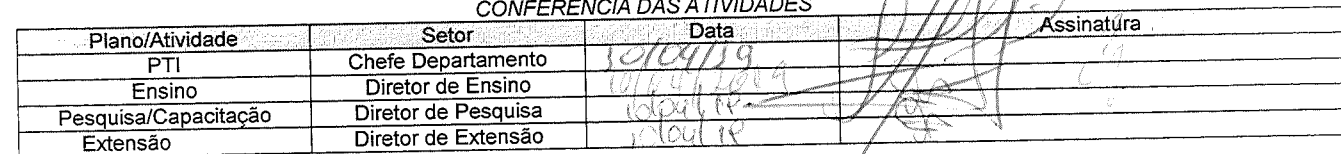 CONFERÊNCIA DAS ATIVIDADES
Plano/Atividade Setor Data Assinatura
PTI Chefe Departamento 10/04/19
Ensino Diretor de Ensino 10/04/2019
Pesquisa/Capacitação Diretor de Pesquisa
Extensão Diretor de Extensão